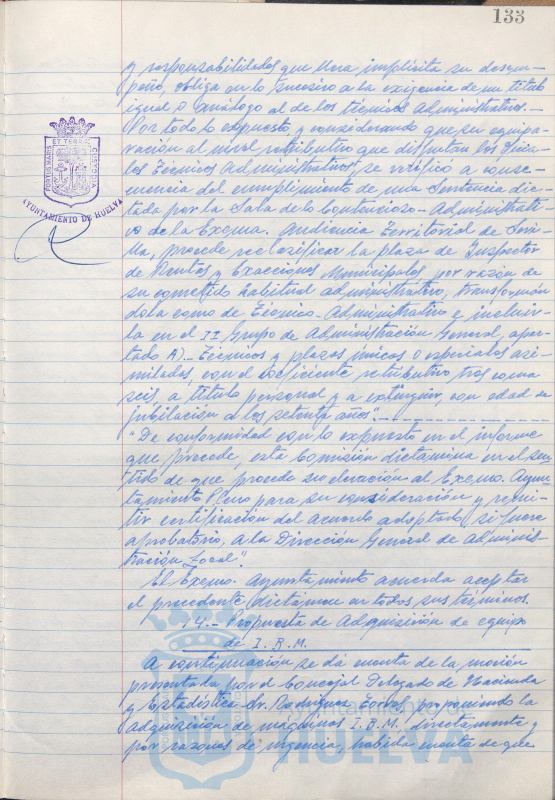 133
y responsabilidades que lleva implícita su desem-
peño, obliga en lo sucesivo a la exigencia de un título
igual o análogo al de los técnicos administrativos.-
Por todo lo expuesto, y considerando que su equipa-
ración al nivel retributivo que disfrutan los Oficia-
les Técnicos Administrativos, se verificó a conse-
cuencia del cumplimiento de una Sentencia dic-
tada por la Sala de lo Contencioso-Administrati-
vo de la Excma. Audiencia Territorial de Sevi-
lla, procede reclasificar la plaza de Inspector
de Rentas y Exacciones Municipales por razón de
su cometido habitual administrativo, transformán
dola como de Técnico-Administrativo e incluir-
la en el II Grupo de Administración General, apar-
tado A).- Técnicos y plazas únicas o especiales asi-
miladas, con el coeficiente retributivo tres coma
seis, a título personal y a extinguir, con edad de
jubilación a los setenta años".
"De conformidad con lo expuesto en el informe
que precede, esta Comisión dictamina en el sen-
tido de que procede su elevación al Excmo. Ayun-
tamiento Pleno para su consideración y remi-
tir certificación del acuerdo adoptado, si fuere
aprobatorio, a la Dirección General de Adminis-
tración Local".
El Excmo. Ayuntamiento acuerda aceptar
el precedente dictamen en todos sus términos.
14.- Propuesta de adquisición de equipo
de I.B.M.
A continuación se dá cuenta de la moción
presentada por el Concejal Delegado de Hacienda
y Estadística Sr. Rodríguez proponiendo la
adquisición de máquinas I.B.M. directamente y
por razones de urgencia, habida cuenta de que
PORTUS MARIS
ET TERRAE
CUSTODIA
AYUNTAMIENTO DE HUELVA
HUELVA